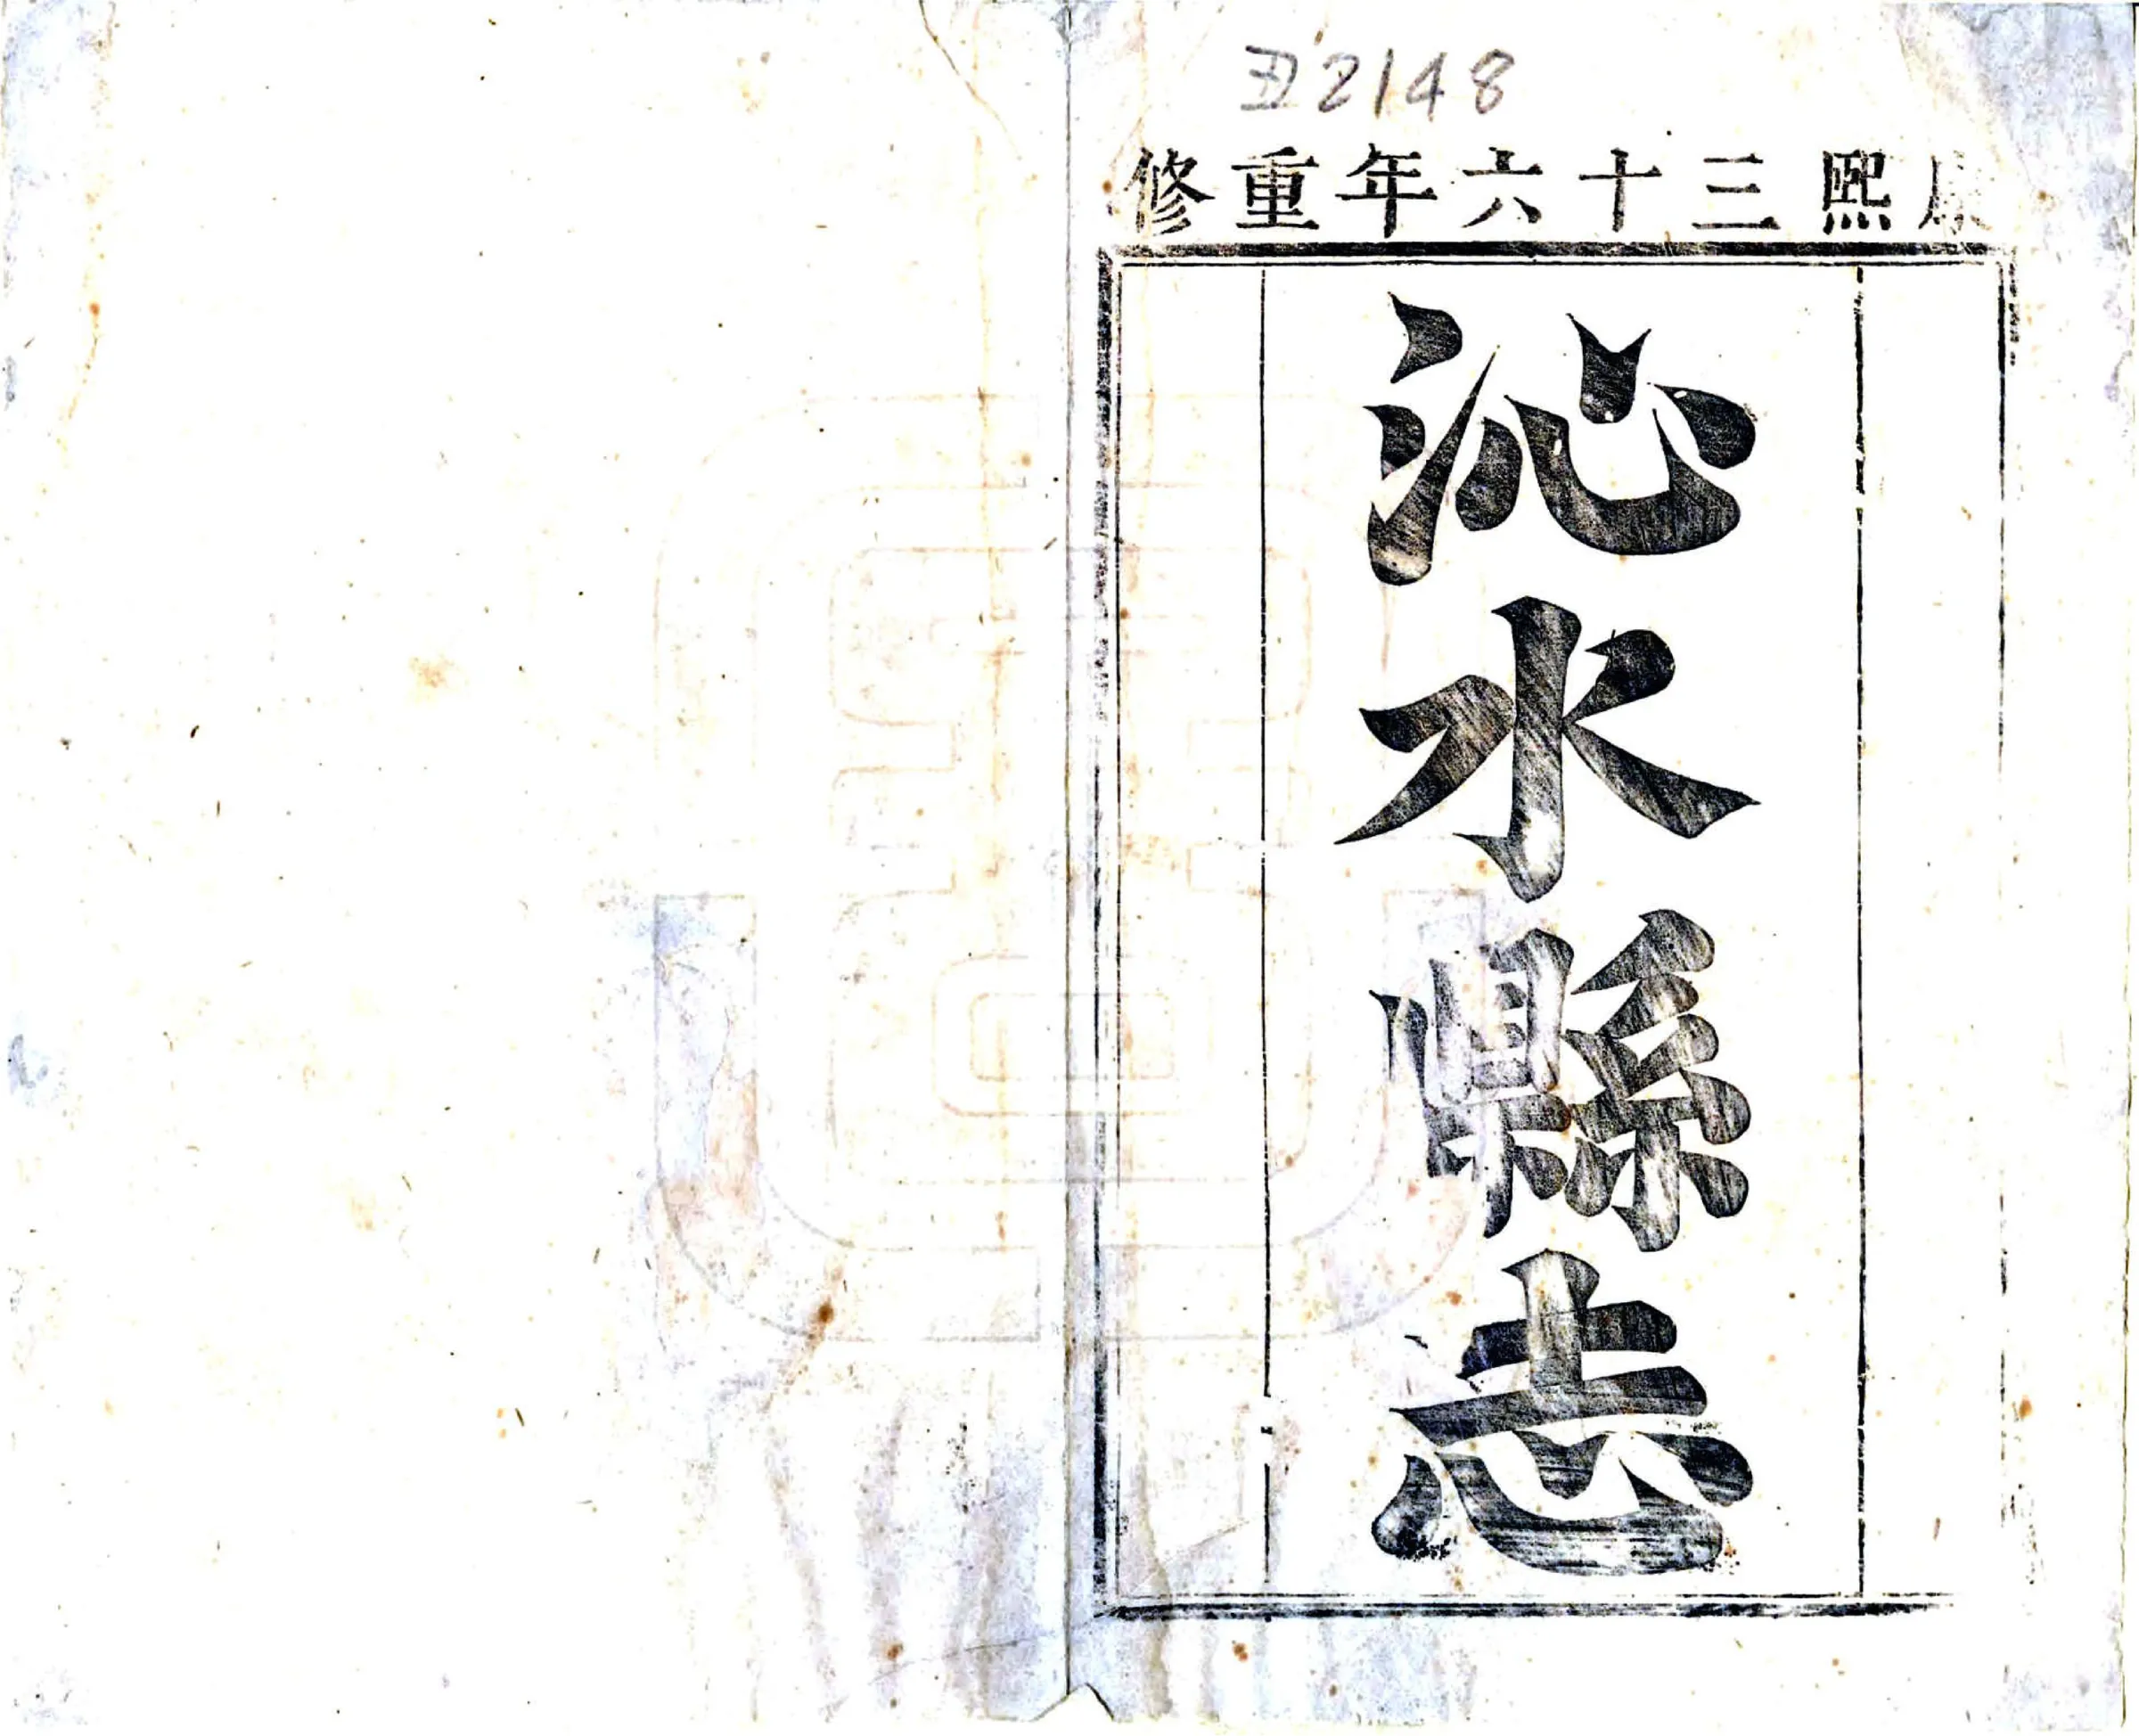 2148
康熙三十六年重修
沁水縣志